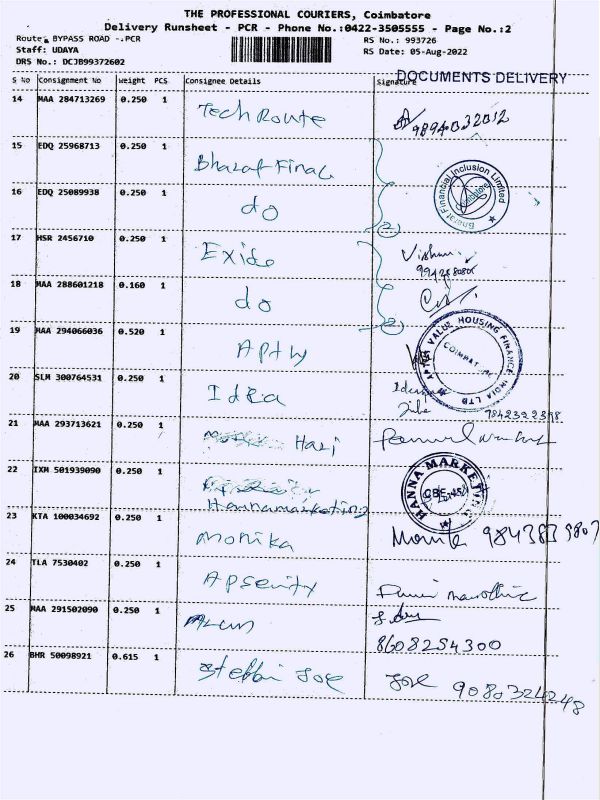 THE PROFESSIONAL COURIERS, Coimbatore
Delivery Runsheet - PCR - Phone No.:0422-3505555 - Page No.:2
Route: BYPASS ROAD -.PCR
RS No.: 993726
Staff: UDAYA
RS Date: 05-Aug-2022
DRS No.: DCJB99372602
DOCUMENTS DELIVERY
S No Consignment No Weight PCS Consignee Details Signature
14 MAA 284713269 0.250 1 Tech Route 9894032012
15 EDQ 25968713 0.250 1 Bharat Finac
Bharat Financial Inclusion Limited
Coimbatore
16 EDQ 25089938 0.250 1 do
(2)
17 HSR 2456710 0.250 1 Exide
18 MAA 288601218 0.160 1 do
(2)
19 MAA 294066036 0.520 1 Apthy
VALUE HOUSING FINANCE INDIA LTD
20 SLM 300764531 0.250 1 Idea
21 MAA 293713621 0.250 1 Hari
22 IXM 501939090 0.250 1
Hannamarketing
HANNA MARKETING
23 KTA 100034692 0.250 1 Monika
24 TLA 7530402 0.250 1
25 MAA 291502090 0.250 1
8608254300
26 BHR 50098921 0.615 1 Stebbi Joe Joe 9080324248